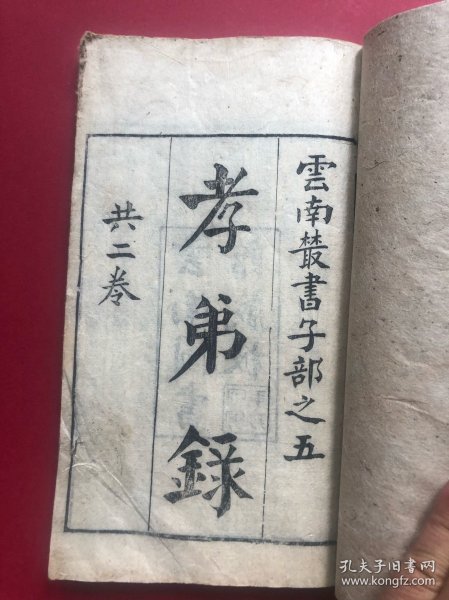 雲南叢書子部之五
孝弟録
共二卷
孔夫子旧书网
www.kongfz.com